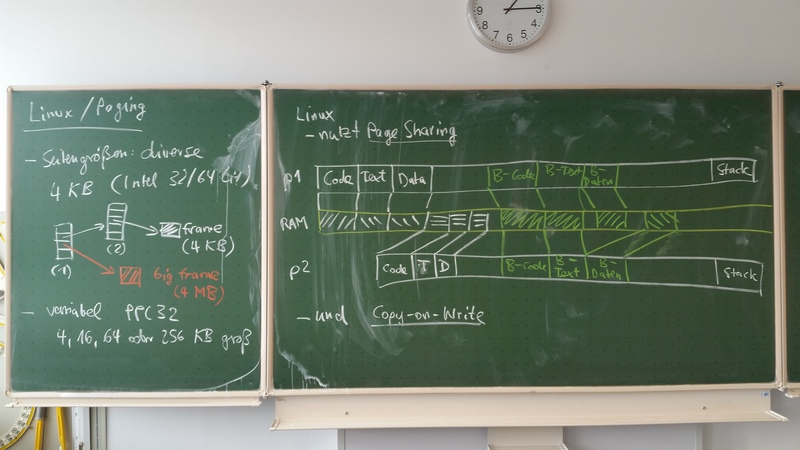 Linux / Paging
- Seitengrößen: diverse
4 KB (Intel 32/64 bit)
(1)
(2)
frame
(4 KB)
big frame
(4 MB)
- variabel PPC32
4, 16, 64 oder 256 KB groß
Linux
- nutzt Page Sharing
P1 Code Text Data B-Code B-Text B-Daten Stack
RAM
P2 Code T D B-Code B-Text B-Daten Stack
- und Copy-on-Write
9 8 7 6 5 4 3